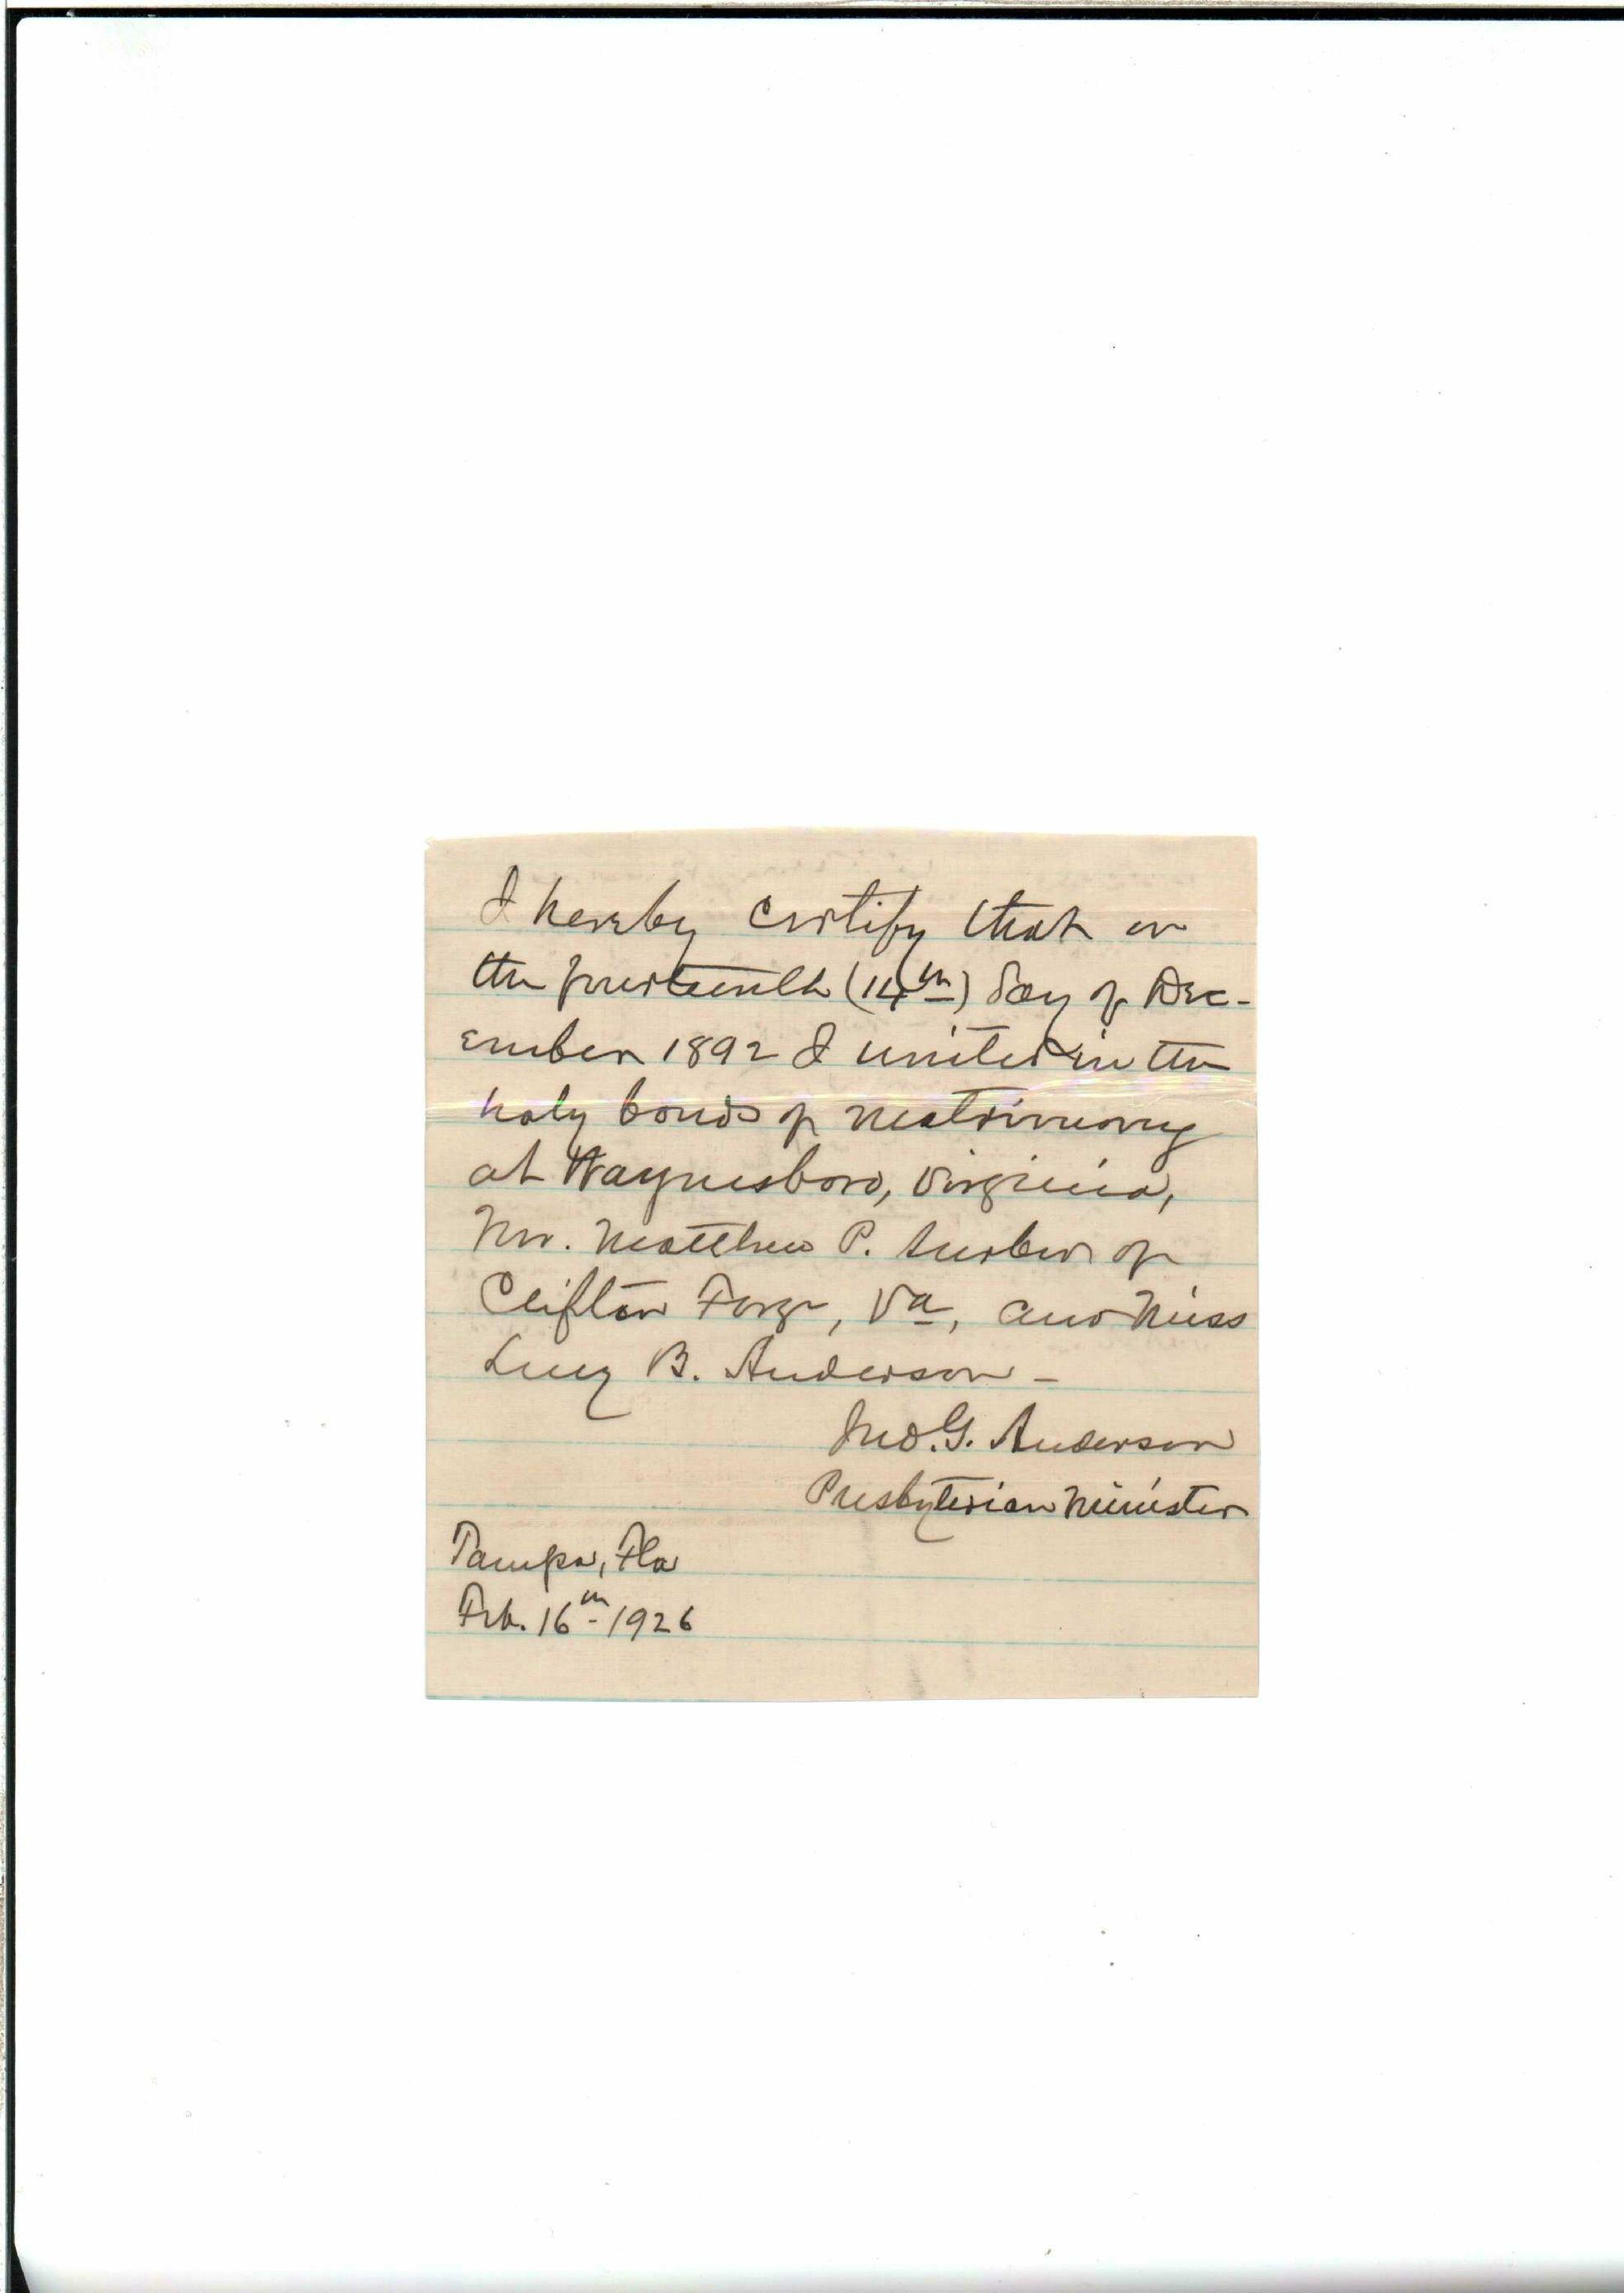 I hereby certify that on
the fourteenth (14th) day of Dec-
ember 1892 I united in the
holy bonds of matrimony
at Waynesboro, Virginia,
Mr. Matthew P. of
Clifton Forge, Va, and Miss
Lucy B. Anderson -
Jno. G. Anderson
Presbyterian Minister
Tampa, Fla
Feb. 16th - 1926